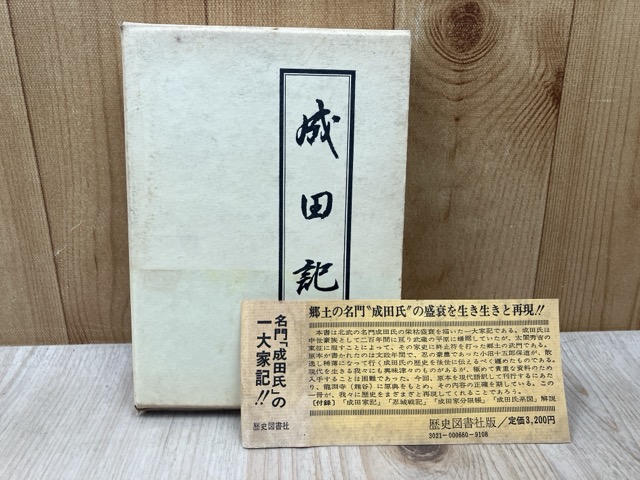 成田記
名門「成田氏」の
一大家記!!
歴史図書社
郷土の名門“成田氏”の盛衰を生き生きと再現!!
本書は北武の名門成田氏の栄枯盛衰を描いた一大家記である。成田氏は
中世豪族として二百年間に亘り武蔵の平原に雄飛していたが、太閤秀吉の
東征に屈すことによって、その家史に終止符を打った郷土の武門である。
原本が書かれたのは文政年間で、忍の豪農であった小沼十五郎保道が、散
逸し稀薄になって行く成田氏の歴史を後世に伝えるべく纏めたものである。
現代を生きる我々にも興味津々のものがあるが、極めて貴重な資料のため
入手することは困難であった。今回、原本を現代語訳して刊行するにあた
り、龍淵寺（熊谷）に原典をもとめ、その内容の正確を期している。この
一冊が、我々に歴史をまざまざと再現してくれることであろう。
〔付録〕「成田家記」「忍城戦記」「成田家分限帳」「成田氏系図」解説
歴史図書社版/定価3,200円
3021-000660-9108